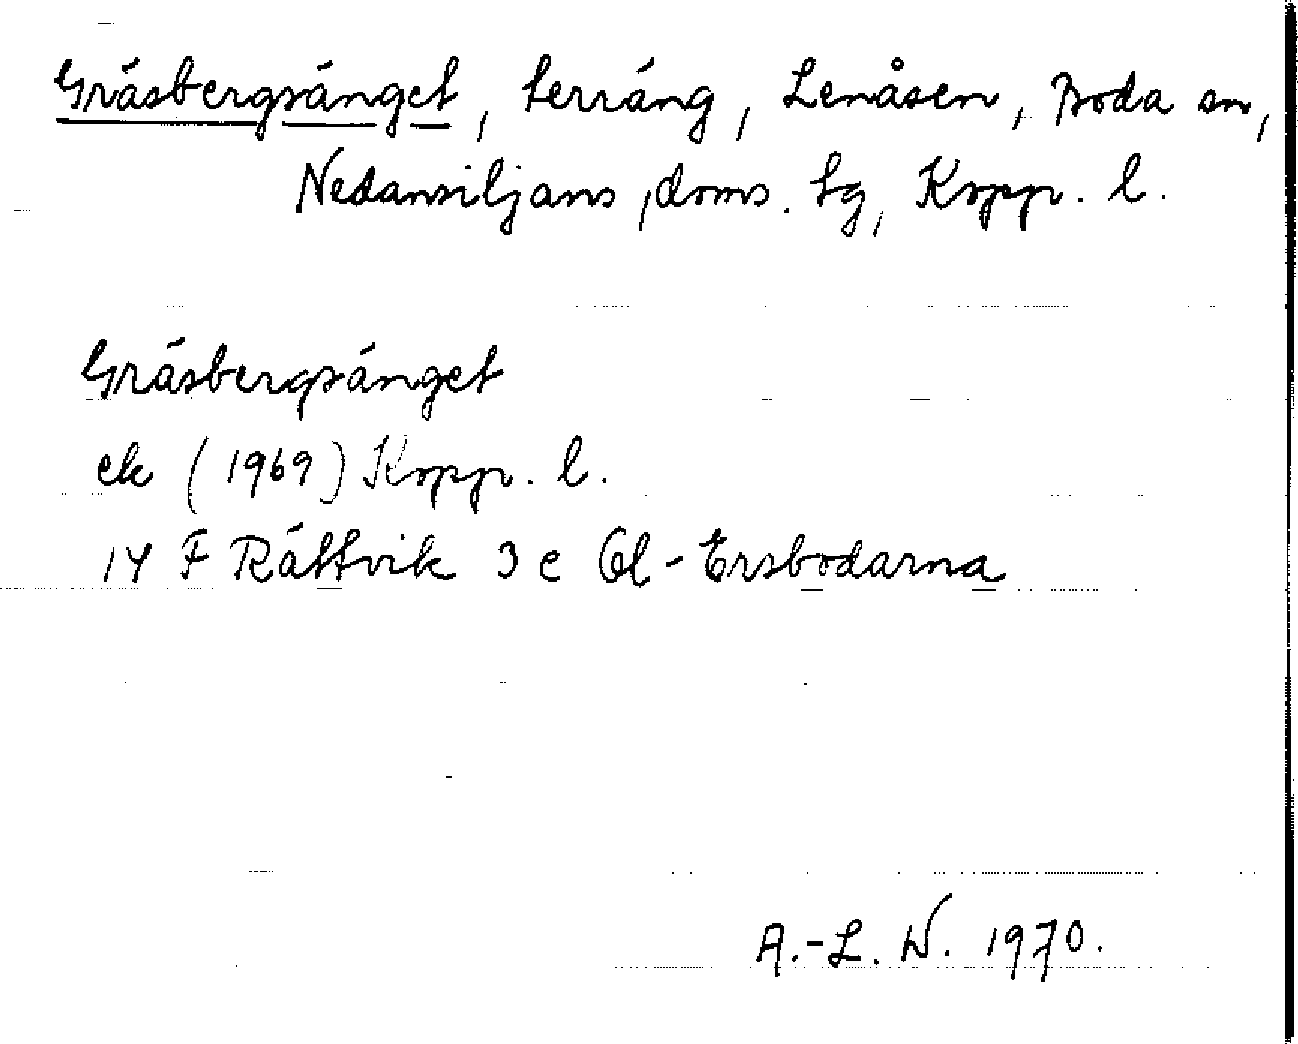 Gräsbergsänget, terräng, Lenåsen, Boda sn,
Nedansiljans doms. tg, Kopp. l.
Gräsbergsänget
ek (1969) Kopp. l.
14 F Rättvik 3 e Gl-Ersbodarna
A.-L. W. 1970.